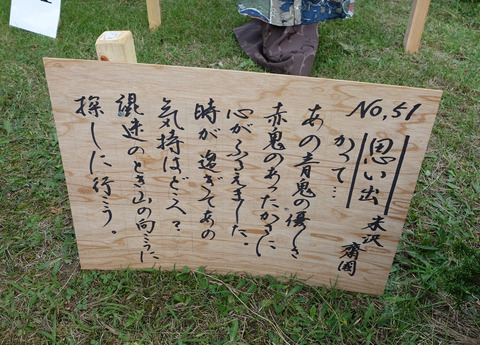 No,51
思い出
米沢
かつて…
あの青鬼の優しさ
赤鬼のあったかさに
心がふるえました。
時が過ぎてあの
気持はどこへ?
混迷のとき山の向こうに
探しに行こう。